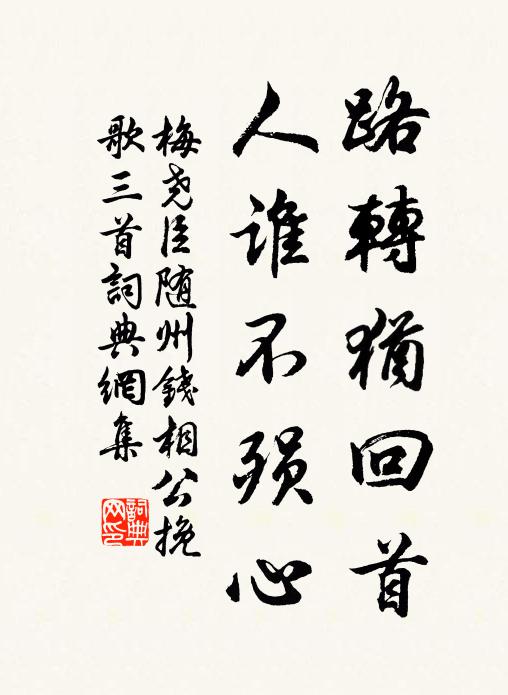 路轉猶回首
人誰不殞心
梅尧臣随州錢相公挽
歌三首詞典網集
詞典
网印